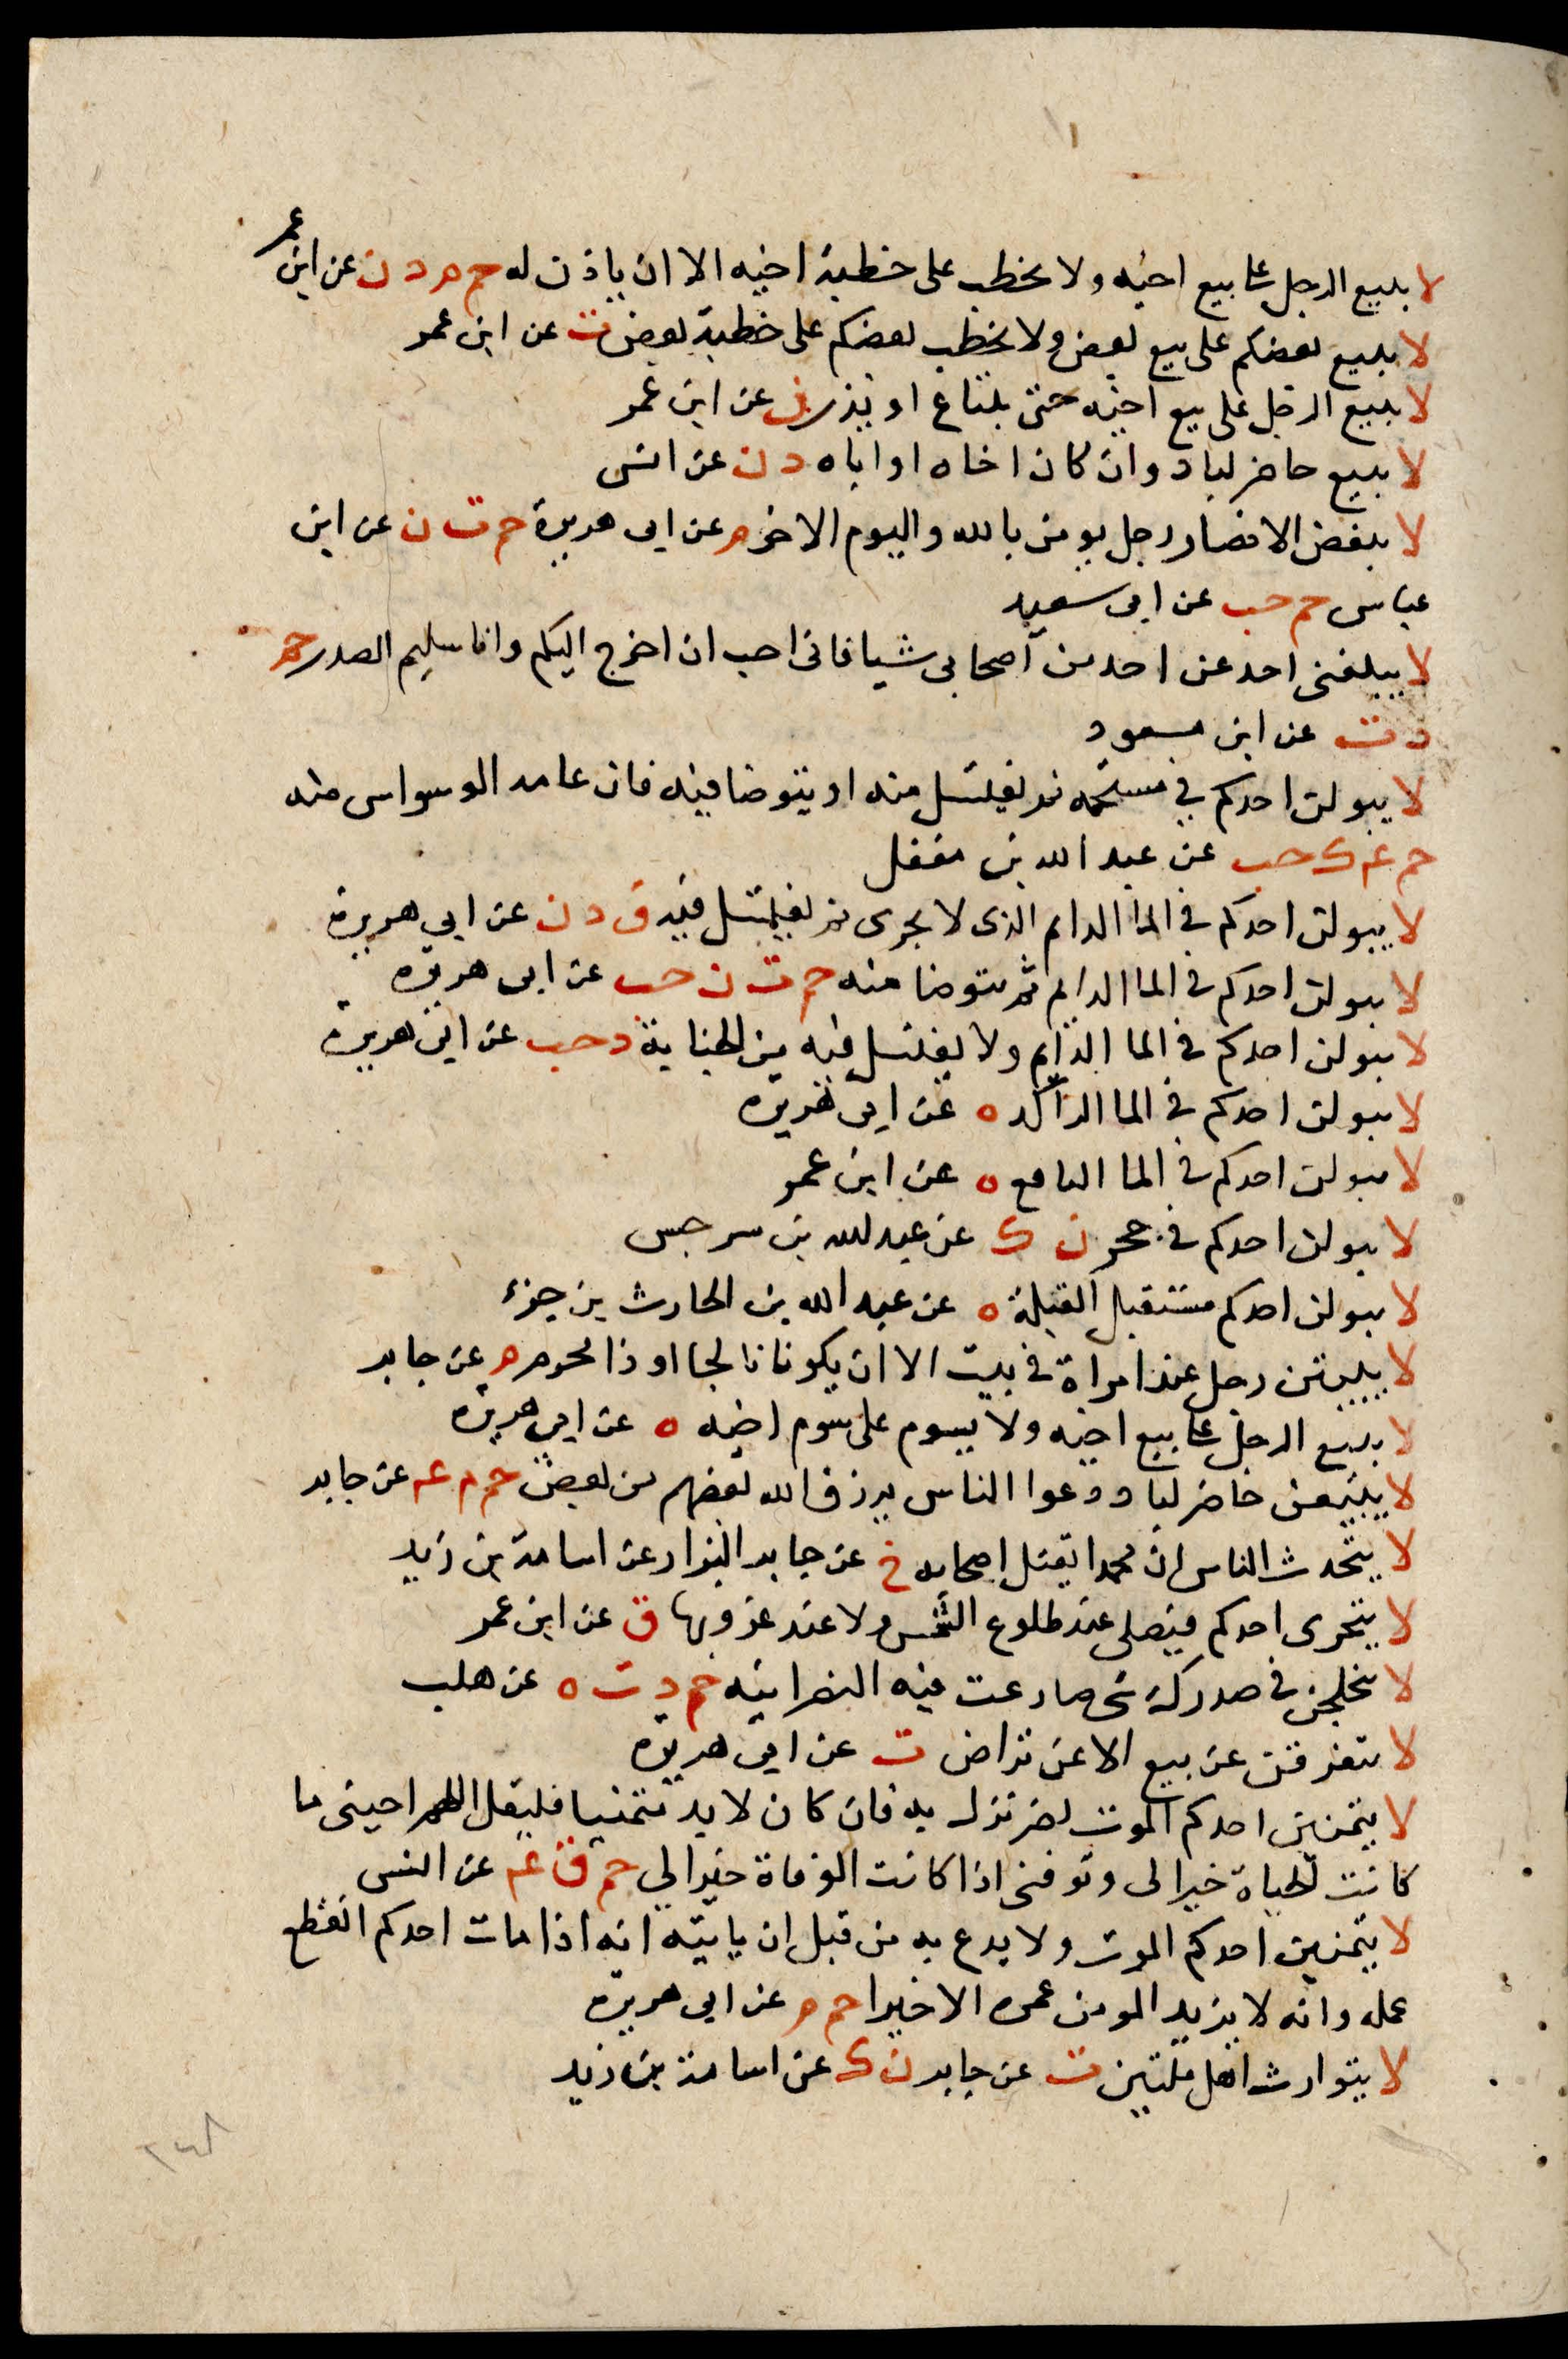 لا يبيع الرجل على بيع اخيه ولا يخطب على خطبة اخيه الا ان ياذن له حم م د ن عن ابن عمر
لا يبيع بعضكم على بيع بعض ولا يخطب بعضكم على خطبة بعض ت عن ابن عمر
لا يبيع الرجل على بيع اخيه حتى يبتاع او يذر ن عن ابن عمر
لا يبيع حاضر لباد وان كان اخاه او اباه د ن عن انس
لا يبغض الانصار رجل يومن بالله واليوم الاخر م عن ابى هريرة حم ت ن عن ابن
عباس حم حب عن ابى سعيد
لا يبلغنى احد عن احد من اصحابى شيا فانى احب ان اخرج اليكم وانا سليم الصدر حم
د ت عن ابن مسعود
لا يبولن احدكم في مستحمه ثم يغتسل منه او يتوضا فيه فان عامه الوسواس منه
حم عم ك حب عن عبد الله بن مغفل
لا يبولن احدكم في الما الدايم الذى لا يجرى ثم يغتسل فيه ق د ن عن ابي هريرة
لا يبولن احدكم في الما الدايم ثم يتوضا منه حم ت ن حب عن ابى هريرة
لا يبولن احدكم في الما الدايم ولا يغتسل فيه من الجنابة د حب عن ابى هريرة
لا يبولن احدكم في الما الراكد ه عن ابى هريرة
لا يبولن احدكم في الما الناقع ه عن ابن عمر
لا يبولن احدكم في جحر ن ك عن عبد الله بن سرجس
لا يبولن احدكم مستقبل القبلة ه عن عبد الله بن الحارث بن جزء
لا يبيتن رجل عند امراة في بيت الا ان يكون ناكحا او ذا محرم م عن جابر
لا يبيع الرجل على بيع اخيه ولا يسوم على سوم اخيه ه عن ابى هريرة
لا يبيعن حاضر لباد ودعوا الناس يرزق الله بعضهم من بعض حم م عم عن جابر
لا يتحدث الناس ان محمدا يقتل اصحابه خ عن جابر البزار عن اسامة بن زيد
لا يتحرى احدكم فيصلى عند طلوع الشمس ولا عند غروبها ق عن ابن عمر
لا يتخلجن في صدرك شى ضارعت فيه النصرانيه حم د ت ه عن هلب
لا يتفرقن عن بيع الا عن تراض ت عن ابى هريرة
لا يتمنين احدكم الموت لضر نزل به فان كان لا بد متمنيا فليقل اللهم احينى ما
كانت الحياة خيرا لى وتوفنى اذا كانت الوفاة خيرا لي حم ق عم عن انس
لا يتمنين احدكم الموت ولا يدع به من قبل ان ياتيه انه اذا مات احدكم انقطع
عمله وانه لا يزيد المومن عمره الا خيرا حم م عن ابى هريرة
لا يتوارث اهل ملتين ت عن جابر ن ك عن اسامة بن زيد